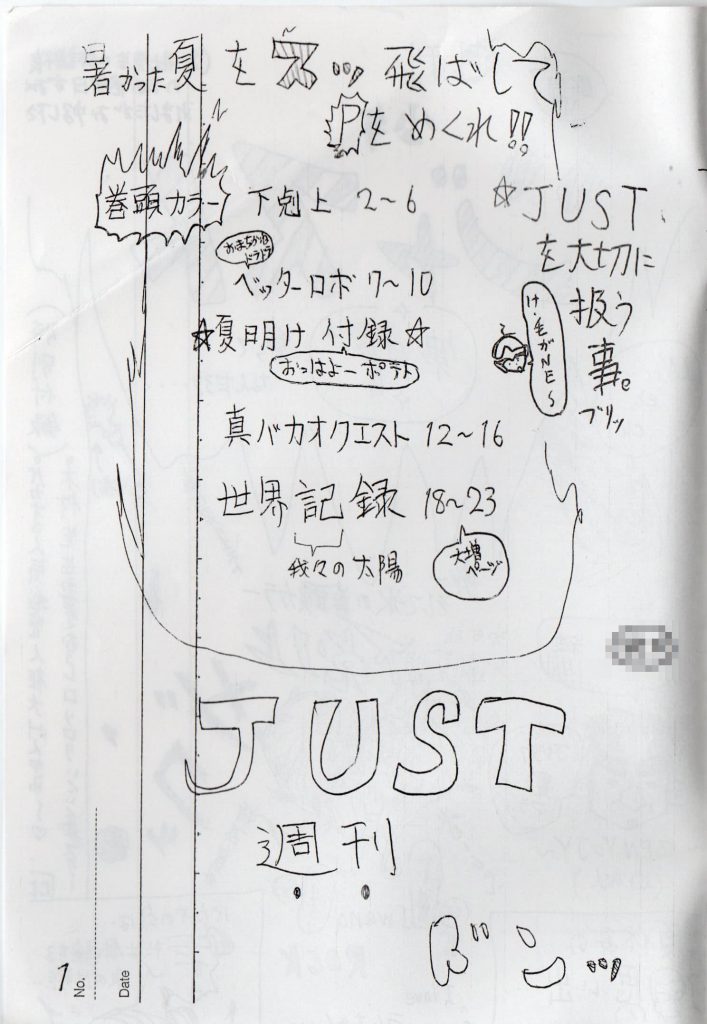 暑かった夏をブッ飛ばして
Pをめくれ!!
巻頭カラー 下剋上 2〜6
おまちかね
ドラドラ
ベッターロボ 7〜10
☆夏明け付録☆
おっはよーポテト
真バカオクエスト 12〜16
世界記録 18〜23
我々の太陽
大増
ページ
☆JUST
を大切に
扱う
事。
ブリッ
け・毛がNE〜
JUST
週刊
ドン
1
No.
Date